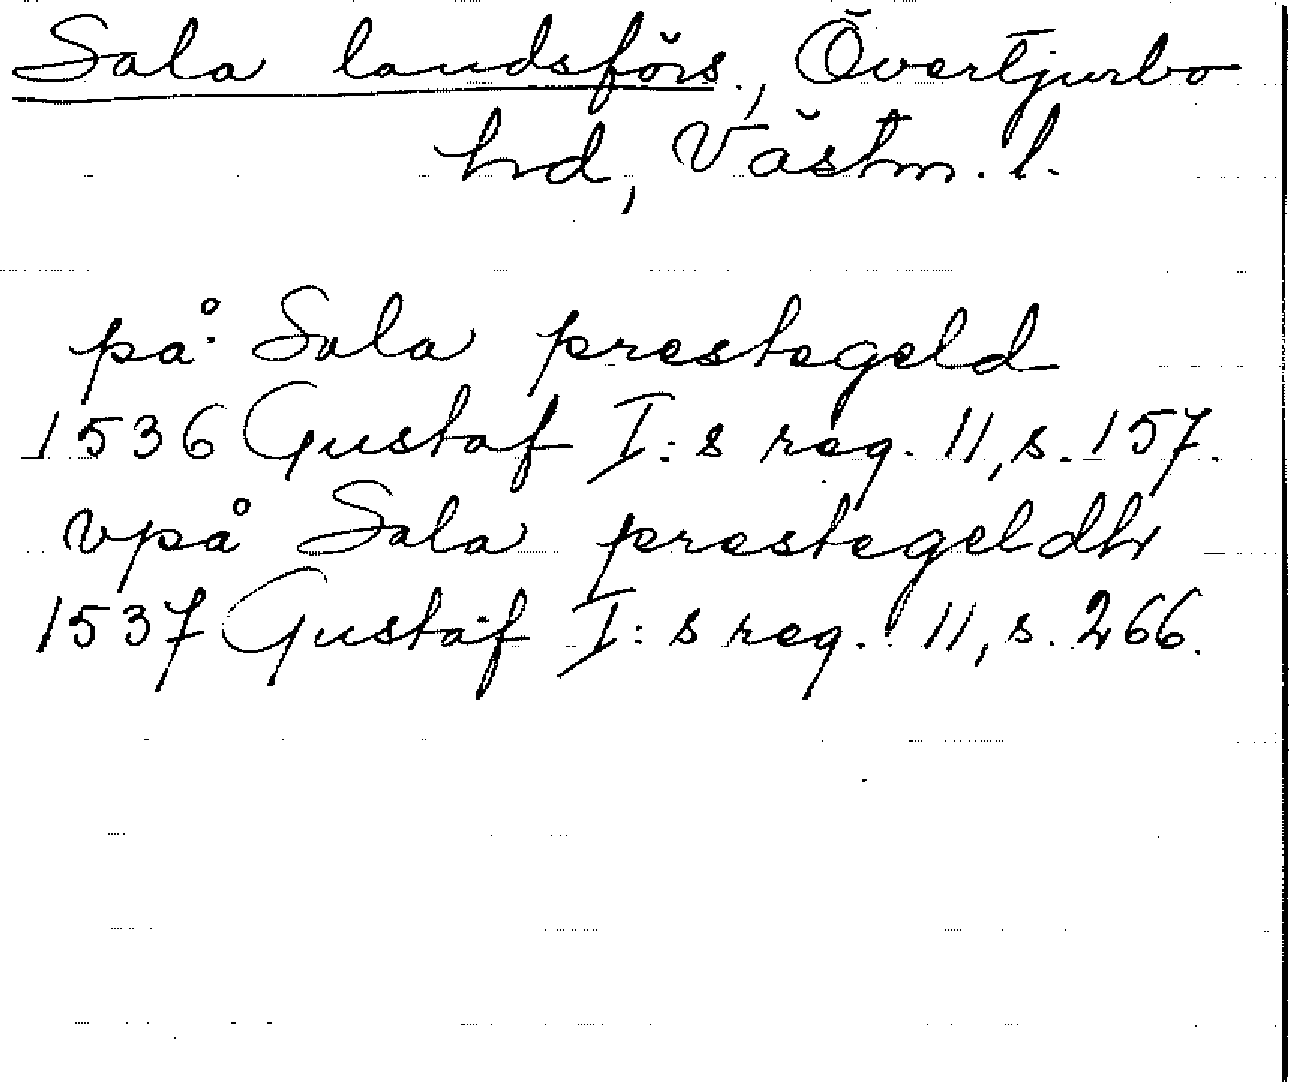 Sala landsförs., Övertjurbo
hd, Västm. l.
på Sala prestegeld
1536 Gustaf I:s reg. 11, s. 157.
vpå Sala prestegeldh
1537 Gustaf I:s reg. 11, s. 266.